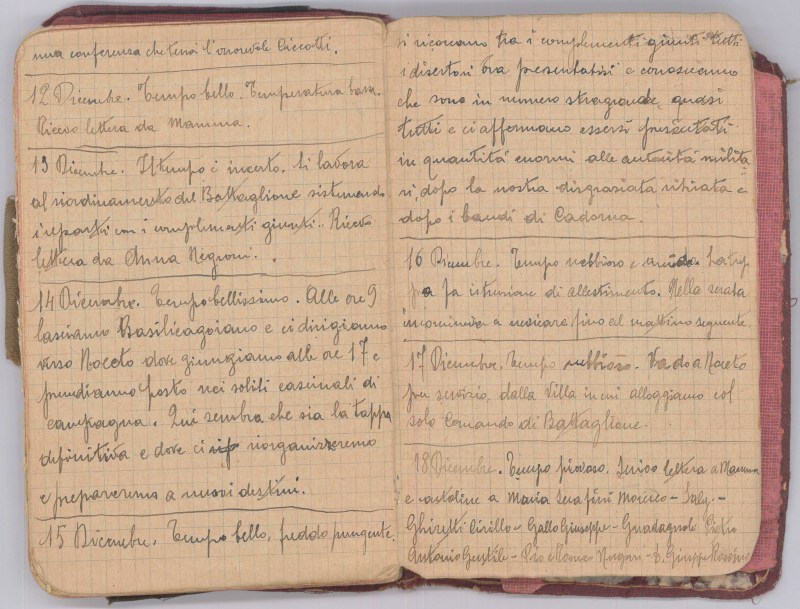 una conferenza che tenne l'onorevole Ciccotti.
12 Dicembre. Tempo bello. Temperatura bassa.
Ricevo lettera da Mamma.
13 Dicembre. Il tempo è incerto. Si lavora
al riordinamento del Battaglione sistemando
i reparti con i complementi giunti. Ricevo
lettera da Anna Negroni.
14 Dicembre. Tempo bellissimo. Alle ore 9
lasciamo Basilicagoiano e ci dirigiamo
verso Noceto dove giungiamo alle ore 17 e
prendiamo posto nei soliti casinali di
campagna. Qui sembra che sia la tappa
definitiva e dove ci riorganizzeremo
e prepareremo a nuovi destini.
15 Dicembre. Tempo bello, freddo pungente.
si ricercano tra i complementi giunti tutti
i disertori ora presentatisi e conosciamo
che sono in numero stragrande, quasi
tutti e ci affermano essersi presentati
in quantità enormi alle autorità milita
ri, dopo la nostra disgraziata ritirata e
dopo i bandi di Cadorna.
16 Dicembre. Tempo nebbioso e La trup
pa fa istruzione di allestimento. Nella serata
incomincia a nevicare fino al mattino seguente.
17 Dicembre. Tempo nebbioso. Vado a Noceto
per servizio dalla Villa in cui alloggiamo col
solo Comando di Battaglione.
18 Dicembre. Tempo piovoso. Scrivo lettera a Mamma
e cartoline a Maria Serafini
Ghiretti Cirillo - Gallo Giuseppe - Guadagnoli Pietro
Antonio Gentile - Giuseppe